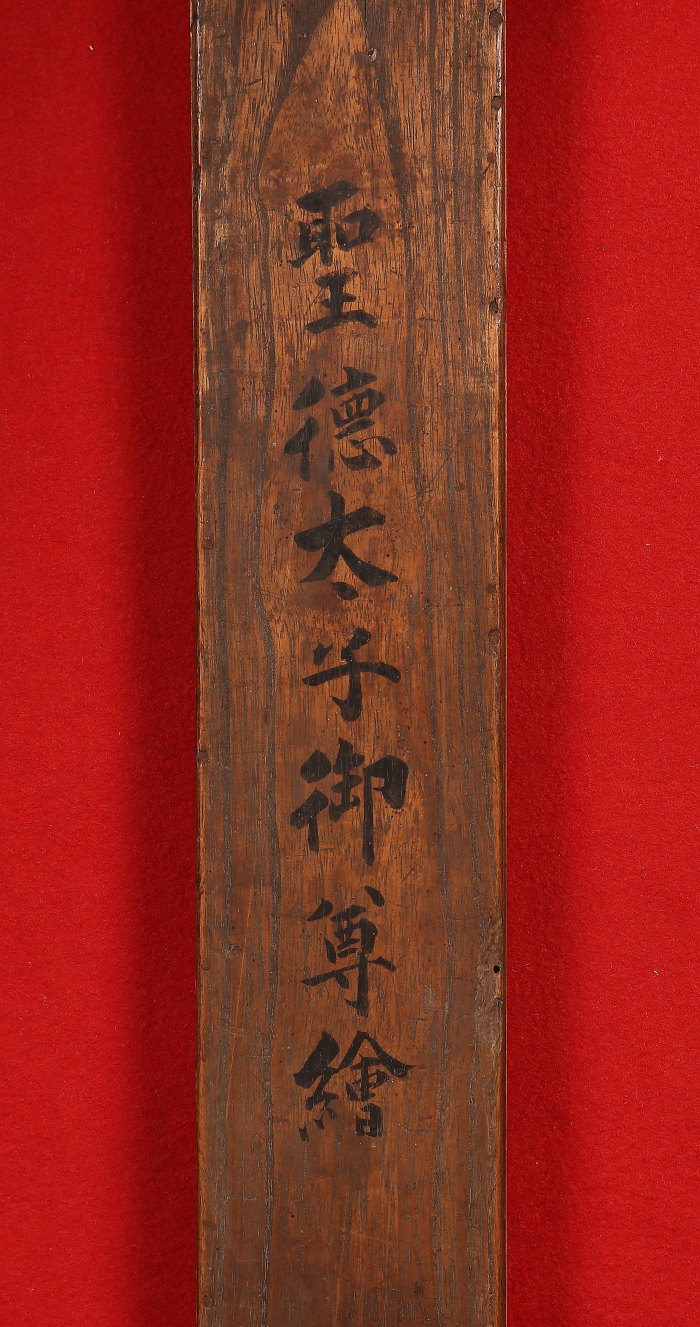 聖德太子御尊繪